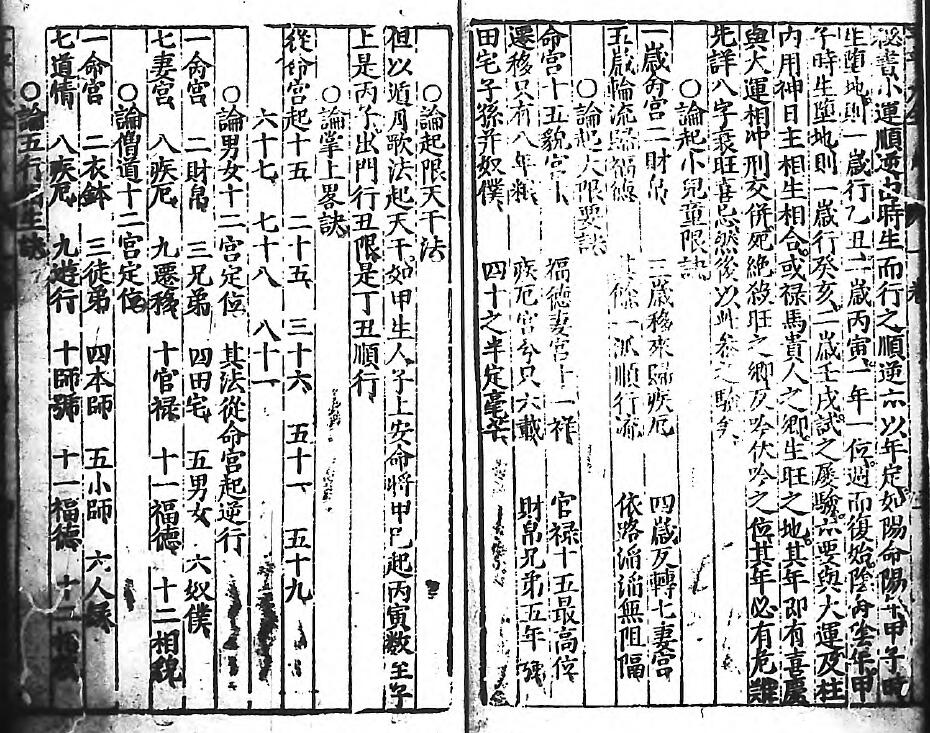 秘書小運順逆占時生而行之順逆亦以年定如陽命陽干甲子時
生墮地則一歲行乙丑二歲丙寅一年一位週而復始陰命陰年甲
子時生墮地則一歲行癸亥二歲壬戌試之屡驗亦要與大運及柱
内用神日主相生相合或禄馬貴人之鄉生旺之地其年即有喜慶
與大運相冲刑交併死絶殺旺之鄉反吟伏吟之位其年必有危難
先詳八字衰旺喜忌然後以此參之驗矣
○論起小兒童限訣
一歲命宫二財帛 三歲移來歸疾厄 四歲反轉七妻宫
五歲輪流歸福德 其餘一派順行流 依路滔滔無阻隔
○論起大限要訣
命宫十五貌宫十 福德妻宫十一祥 官禄十五最高位
遷移只有八年粮 疾厄宫兮只六載 財帛兄弟五年强
田宅子孫并奴僕 四十之半定毫芒
○論起限天干法
但以遁月歌法起天干如甲生人子上安命將甲巳起丙寅数至子
上是丙子出門行丑限是丁丑順行
○論掌上畧訣
從命宫起十五 二十五 三十六 五十一 五十九
六十七 七十八 八十一
○論男女十二宫定位 其法從命宫起逆行
一命宫 二財帛 三兄弟 四田宅 五男女 六奴僕
七妻宫 八疾厄 九遷移 十官禄 十一福德 十二相貌
○論僧道十二宫定位
一命宫 二衣鉢 三徒弟 四本師 五小師 六人縁
七道情 八疾厄 九遊行 十師號 十一福德 十二
○論五行 生訣